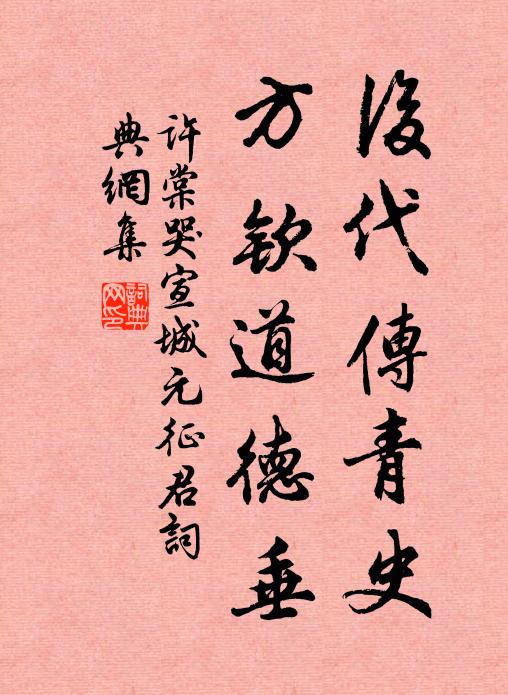 後代傳青史
方欽道德垂
許棠哭宣城元征君詞
典網集
詞典網印